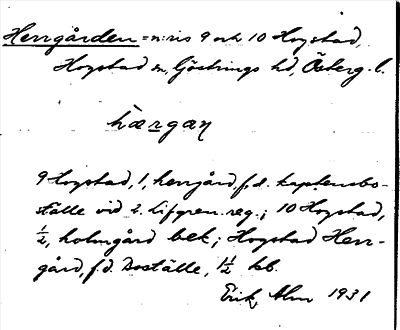 Herrgården = n:ris 9 och 10 Hogstad,
Hogstad sn, Göstrings hd, Österg. l.
hærgan
9 Hogstad, 1, herrgård, f.d. kaptensbo-
ställe vid 2. Lifgren. reg.; 10 Hogstad,
½, holmgård bek; Hogstad Herr-
gård, f.d. Boställe, 1½ kb.
Erik Alm 1931